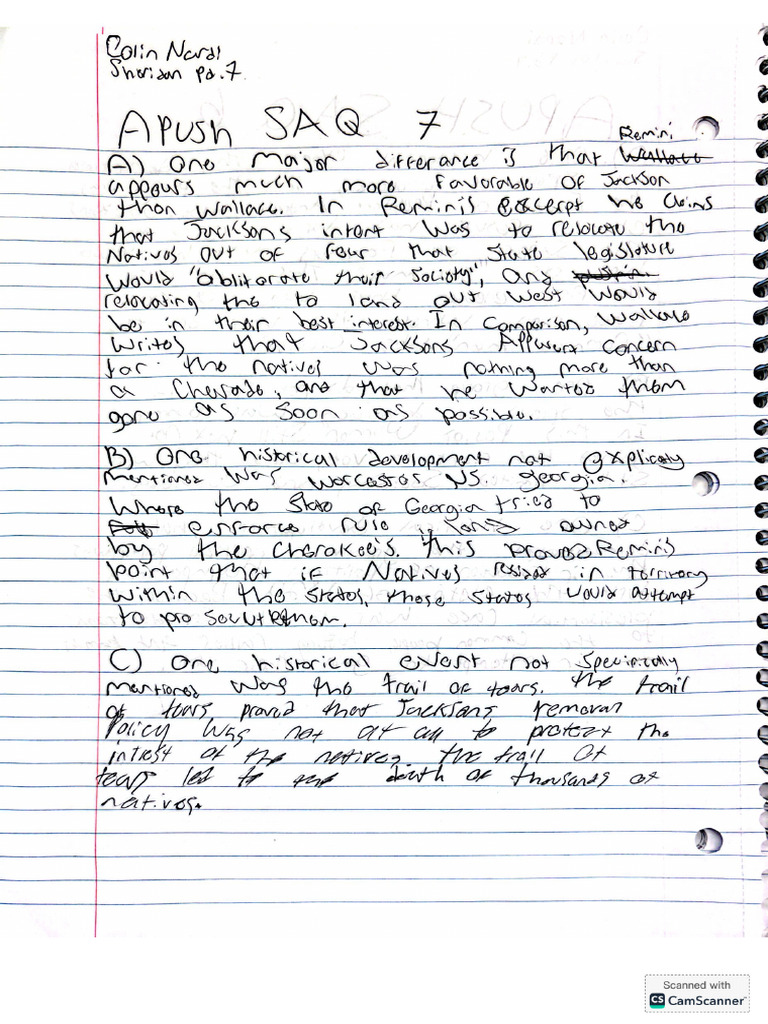 Colin Nardi
Sheridan pd.7
APUSH SAQ 7
A) One major differance is that Remini
appears much more favorable of Jackson
than Wallace. In Remini's excerpt he claims
that Jacksons intent was to relocate the
Natives out of fear that state legislature
would "obliterate their society", and
relocating the to land out west would
be in their best interest. In comparison, Wallace
writes that Jacksons Apparent concern
for the natives was nothing more than
a Cherade, and that he wanted them
gone as soon as possible.
B) One historical development not explicitly
mentioned was Worcester vs. georgia.
Where the State of Georgia tried to
enforce rule land owned
by the Cherokee's. This proved Remini's
point that if Natives resided in territory
within the states, those states would attempt
to prosecute them.
C) One historical event not specifically
mentioned was the trail of tears. The trail
of tears proved that Jacksons removal
Policy was not at all to protect the
intrest of the natives. The trail of
tears led to the death of thousands of
natives.
Scanned with
CS CamScanner